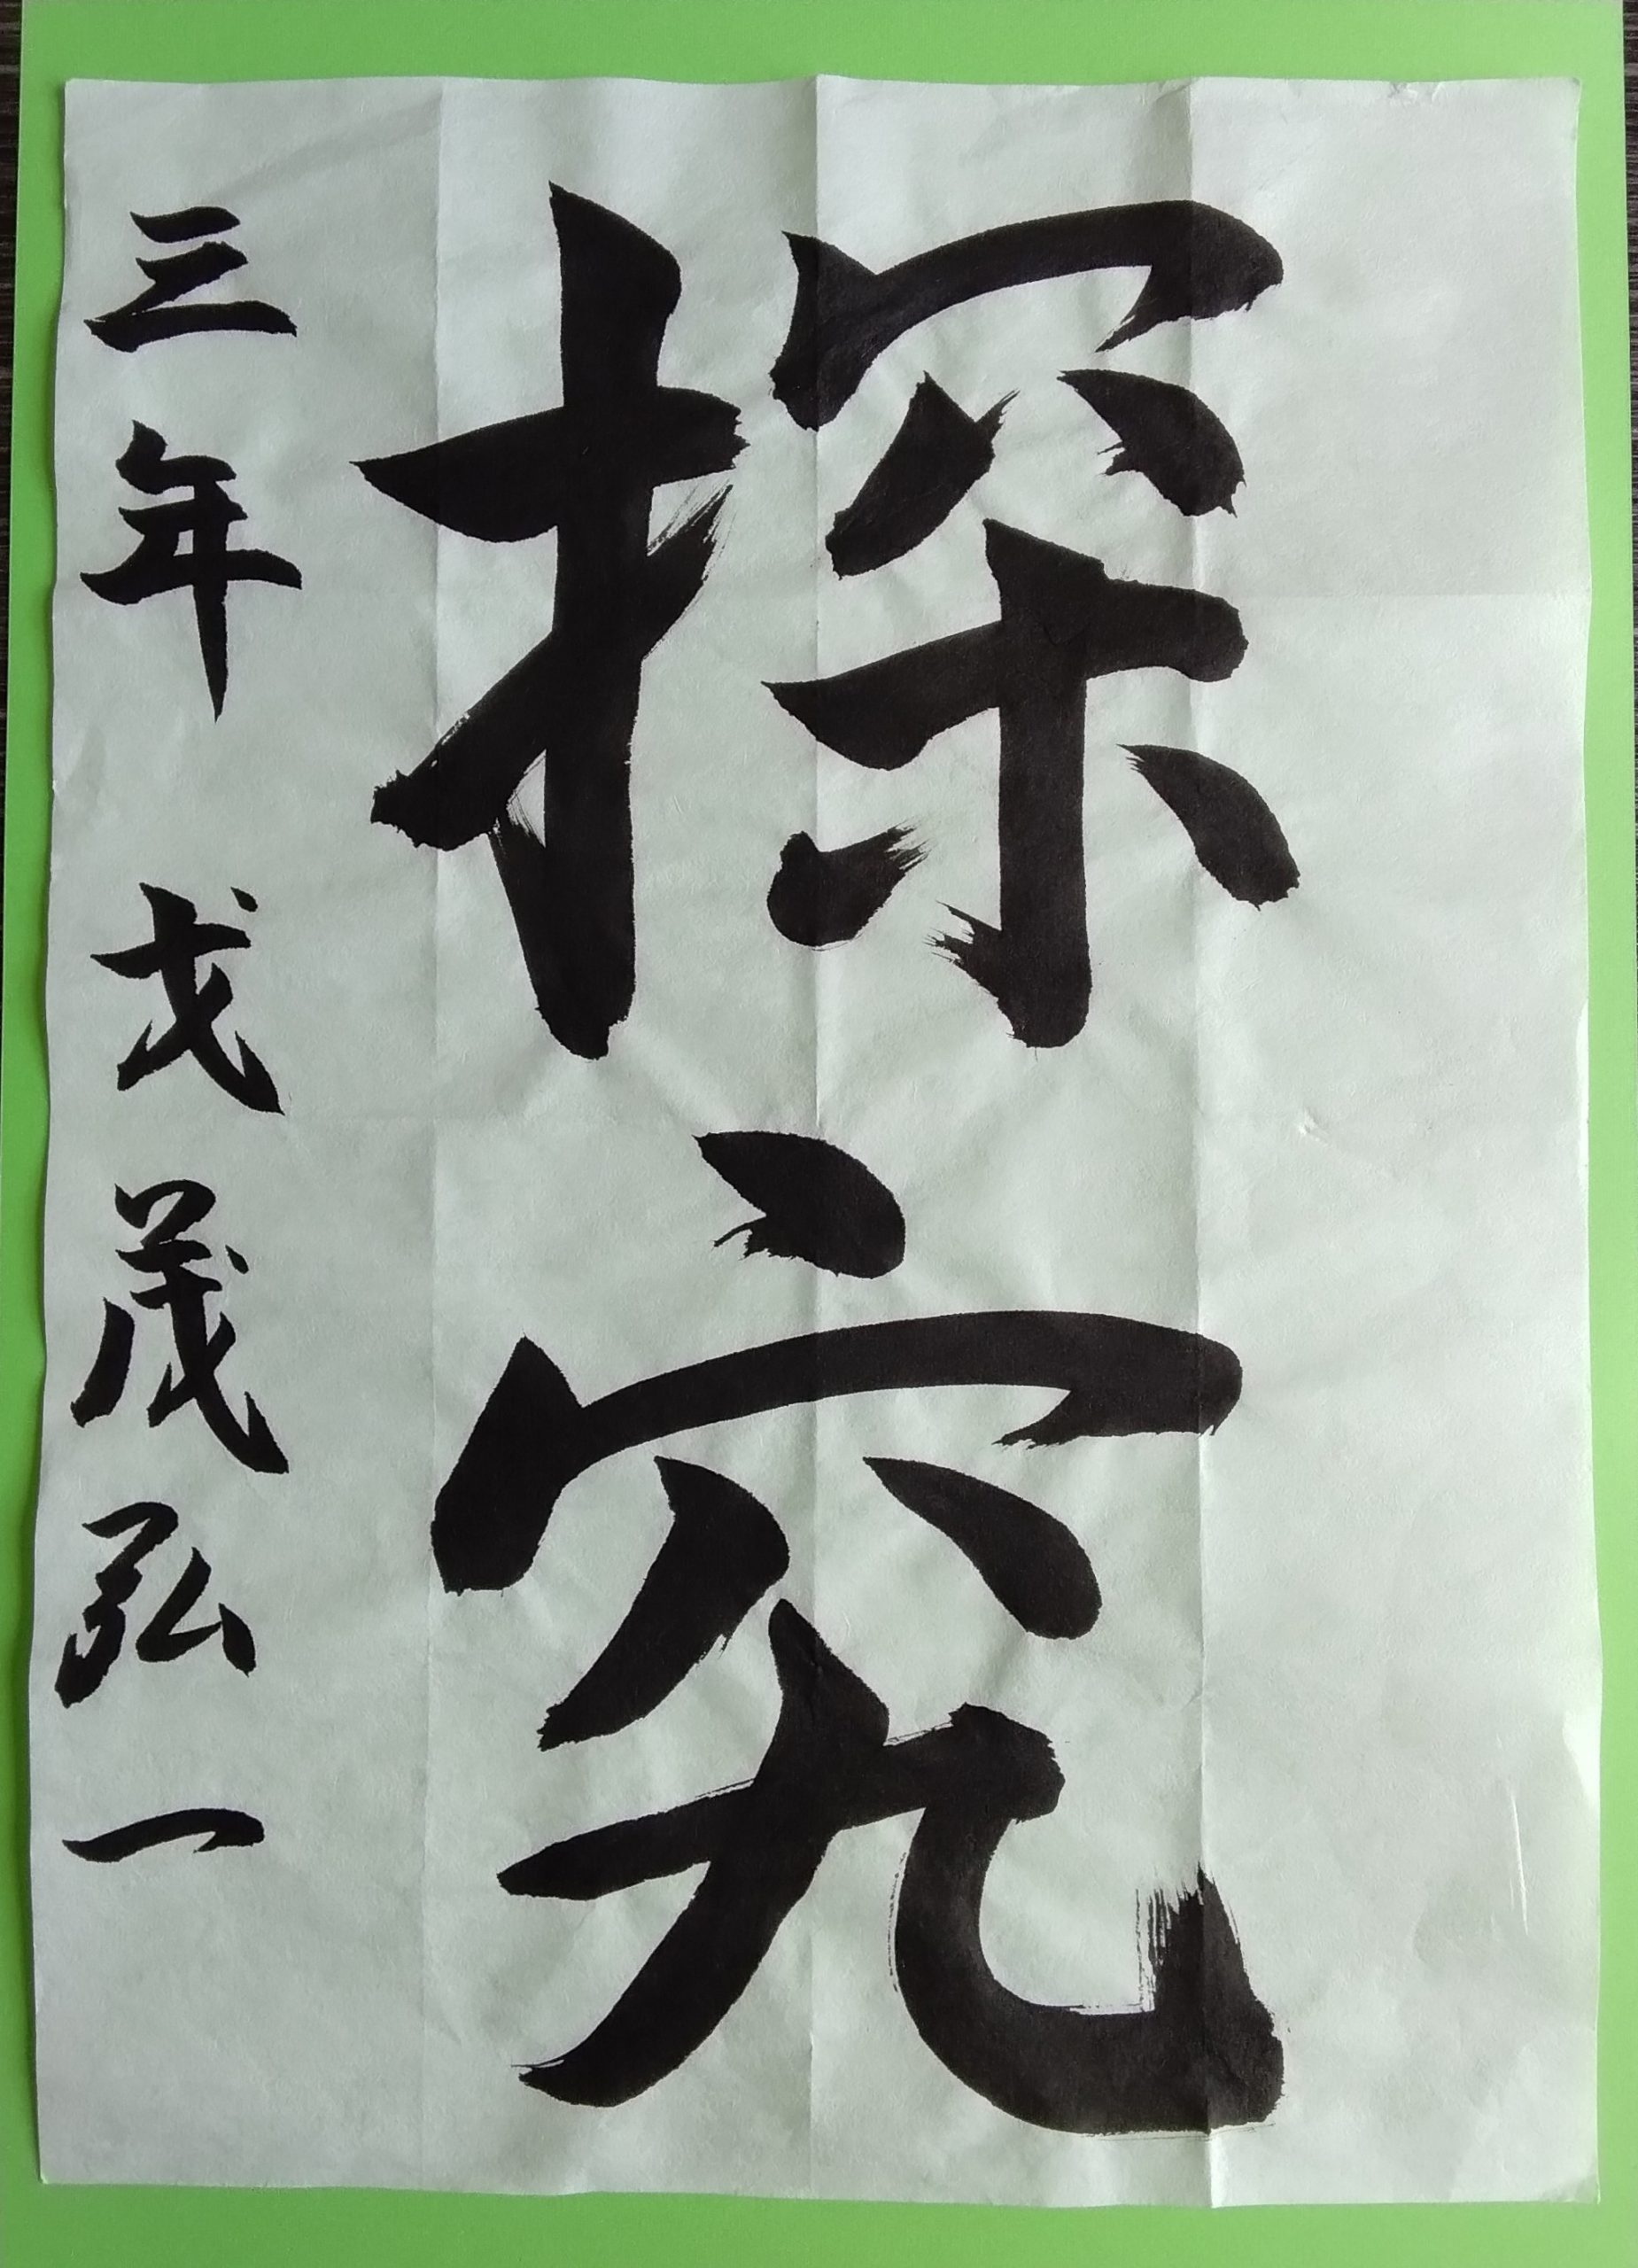 探究
三年 戈茂弘一